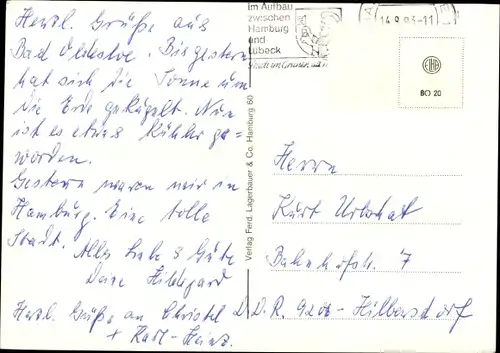 Herzl. Grüße aus
Bad Oldesloe. Bis gestern
hat sich die Sonne um
die Erde gekugelt. Nun
ist es etwas kühler ge=
worden.
Gestern waren wir in
Hamburg. Eine tolle
Stadt. Alles Liebe & Gute
Deine Hildegard
Herzl. Grüße an Christel
+ Karl-Heinz.
Verlag Ferd. Lagerbauer & Co. Hamburg 60
im Aufbau
zwischen
Hamburg
und
Lübeck
14.9.83-11
BO 20
Herrn
Kurt
Bahnhofstr. 7
D.D.R. 9206-Hilbersdorf